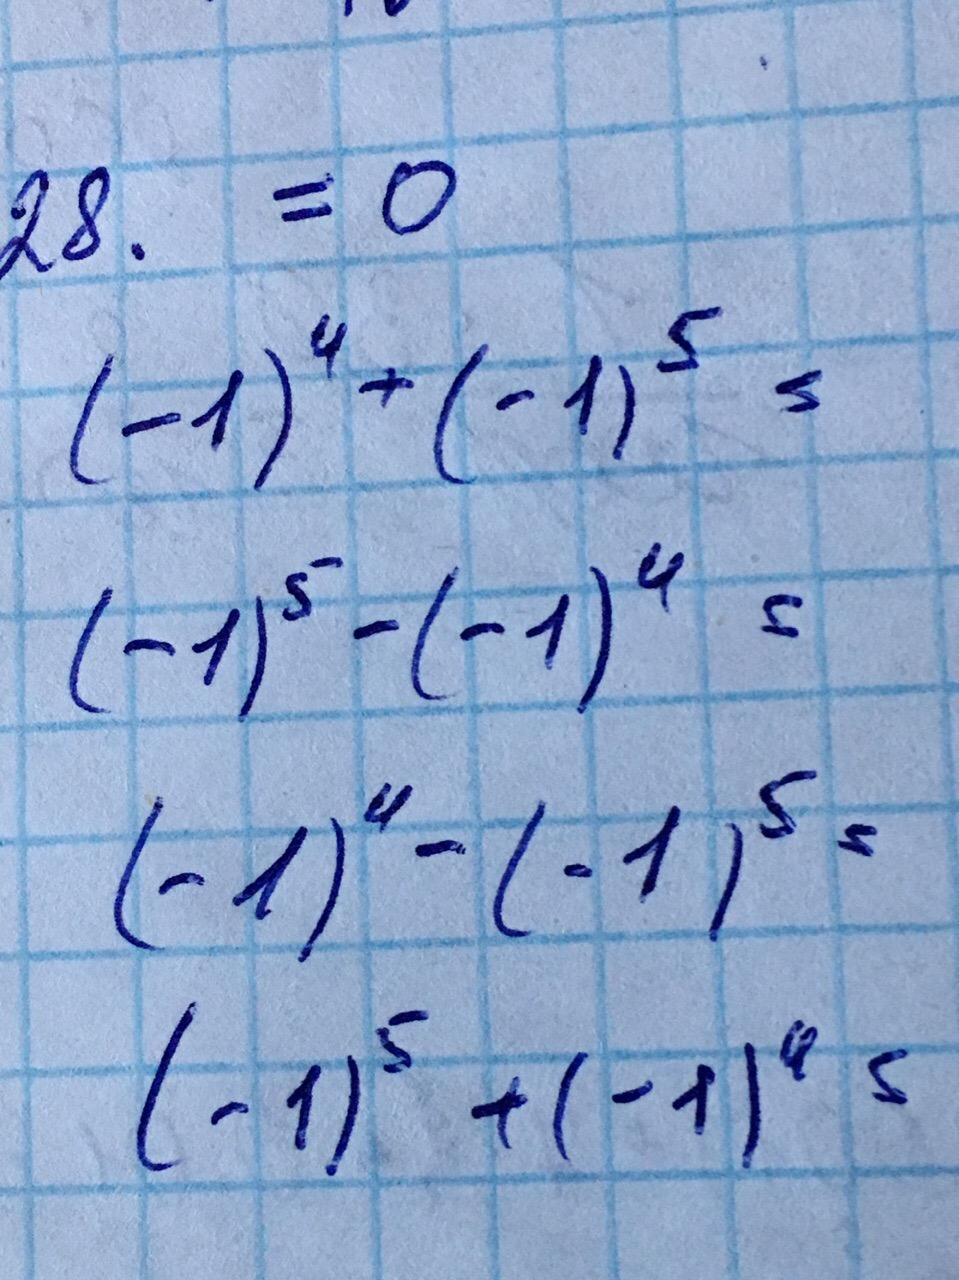 28. = 0
(-1)⁴ + (-1)⁵ =
(-1)⁵ - (-1)⁴ =
(-1)⁴ - (-1)⁵ =
(-1)⁵ + (-1)⁴ =